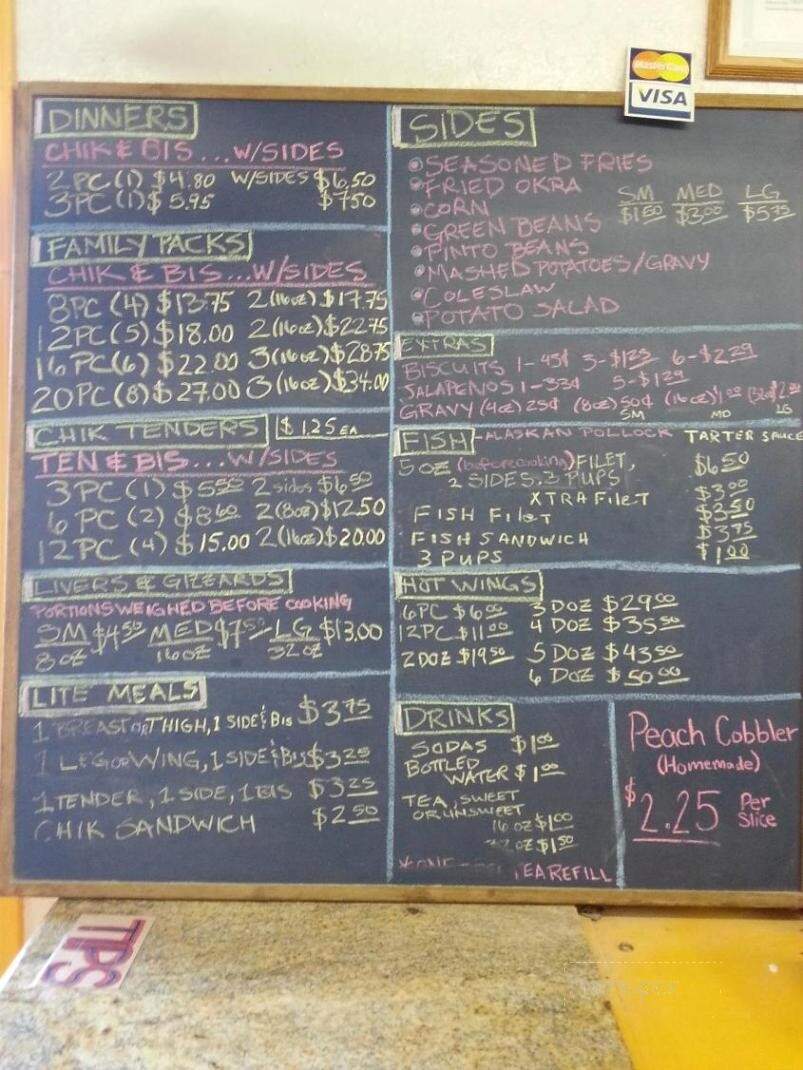 MasterCard
VISA
DINNERS
CHIK & BIS...W/SIDES
2 PC (1) $4.80 W/SIDES $6.50
3 PC (1) $5.95 $7.50
FAMILY PACKS
CHIK & BIS...W/SIDES
8 PC (4) $13.75 2 (16oz) $17.75
12 PC (5) $18.00 2 (16oz) $22.75
16 PC (6) $22.00 3 (16oz) $28.75
20 PC (8) $27.00 3 (16oz) $34.00
CHIK TENDERS $1.25 EA
TEN & BIS...W/SIDES
3 PC (1) $5.50 2 sides $6.50
6 PC (2) $8.60 2 (8oz) $12.50
12 PC (4) $15.00 2 (16oz) $20.00
LIVERS & GIZZARDS
PORTIONS WEIGHED BEFORE COOKING
SM $4.50 MED $7.50 LG $13.00
8 OZ 16 OZ 32 OZ
LITE MEALS
1 BREAST OR THIGH, 1 SIDE & BIS $3.75
1 LEG OR WING, 1 SIDE & BIS $3.25
1 TENDER, 1 SIDE, 1 BIS $3.25
CHIK SANDWICH $2.50
SIDES
SEASONED FRIES
FRIED OKRA
CORN
GREEN BEANS
PINTO BEANS
MASHED POTATOES/GRAVY
COLESLAW
POTATO SALAD
SM MED LG
$1.50 $3.00 $5.75
EXTRAS
BISCUITS 1-45¢ 3-$1.25 6-$2.29
JALAPENOS 1-33¢ 5-$1.29
GRAVY (4oz) 25¢ (8oz) 50¢ (16oz) $1.00
SM MD LG
FISH - ALASKAN POLLOCK TARTER SAUCE
5 OZ (before cooking) FILET, $6.50
2 SIDES, 3 PUPS
XTRA FILET $3.00
FISH FILET $3.50
FISH SANDWICH $3.75
3 PUPS $1.00
HOT WINGS
6 PC $6.00 3 DOZ $29.00
12 PC $11.00 4 DOZ $35.50
2 DOZ $19.50 5 DOZ $43.50
6 DOZ $50.00
DRINKS
SODAS $1.00
BOTTLED
WATER $1.00
TEA, SWEET
OR UNSWEET
16 OZ $1.00
32 OZ $1.50
TEA REFILL
Peach Cobbler
(Homemade)
$2.25 Per Slice
TIPS